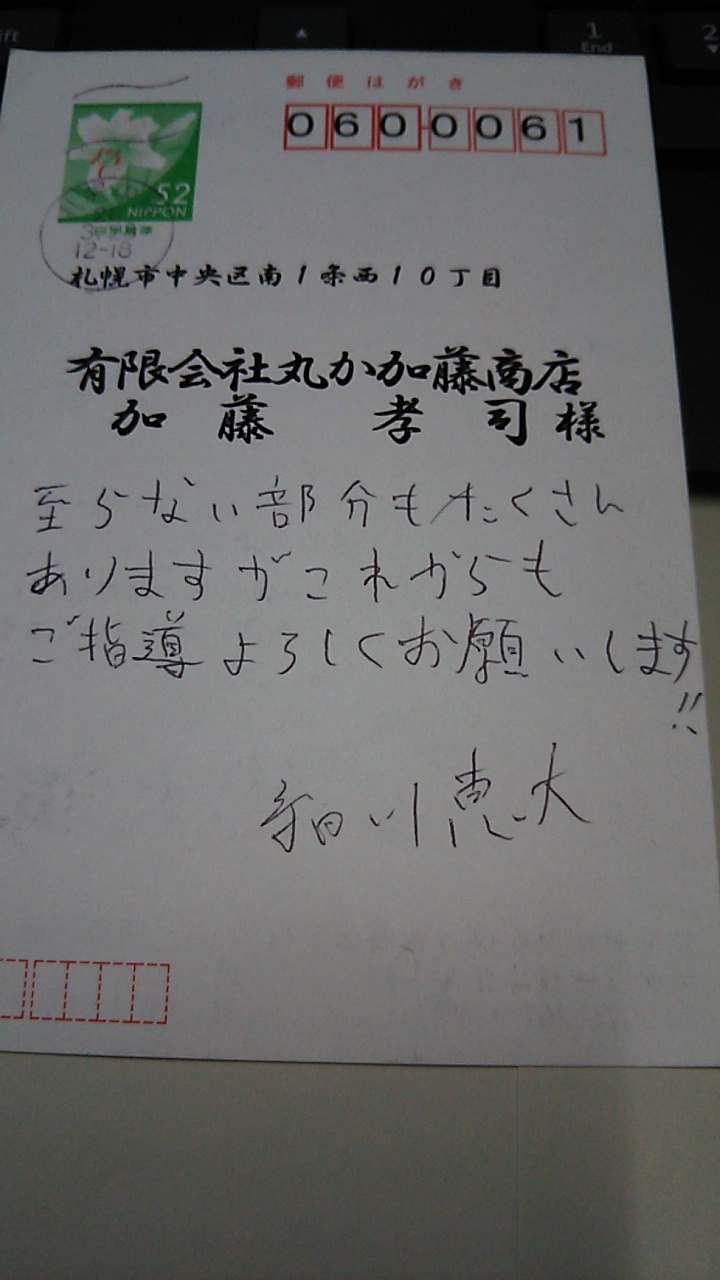 郵便はがき
060-0061
52
NIPPON
12-18
札幌市中央区南1条西10丁目
有限会社丸か加藤商店
加藤 孝司様
至らない部分もたくさん
ありますがこれからも
ご指導よろしくお願いします
!!
細川恵大
1
End
2